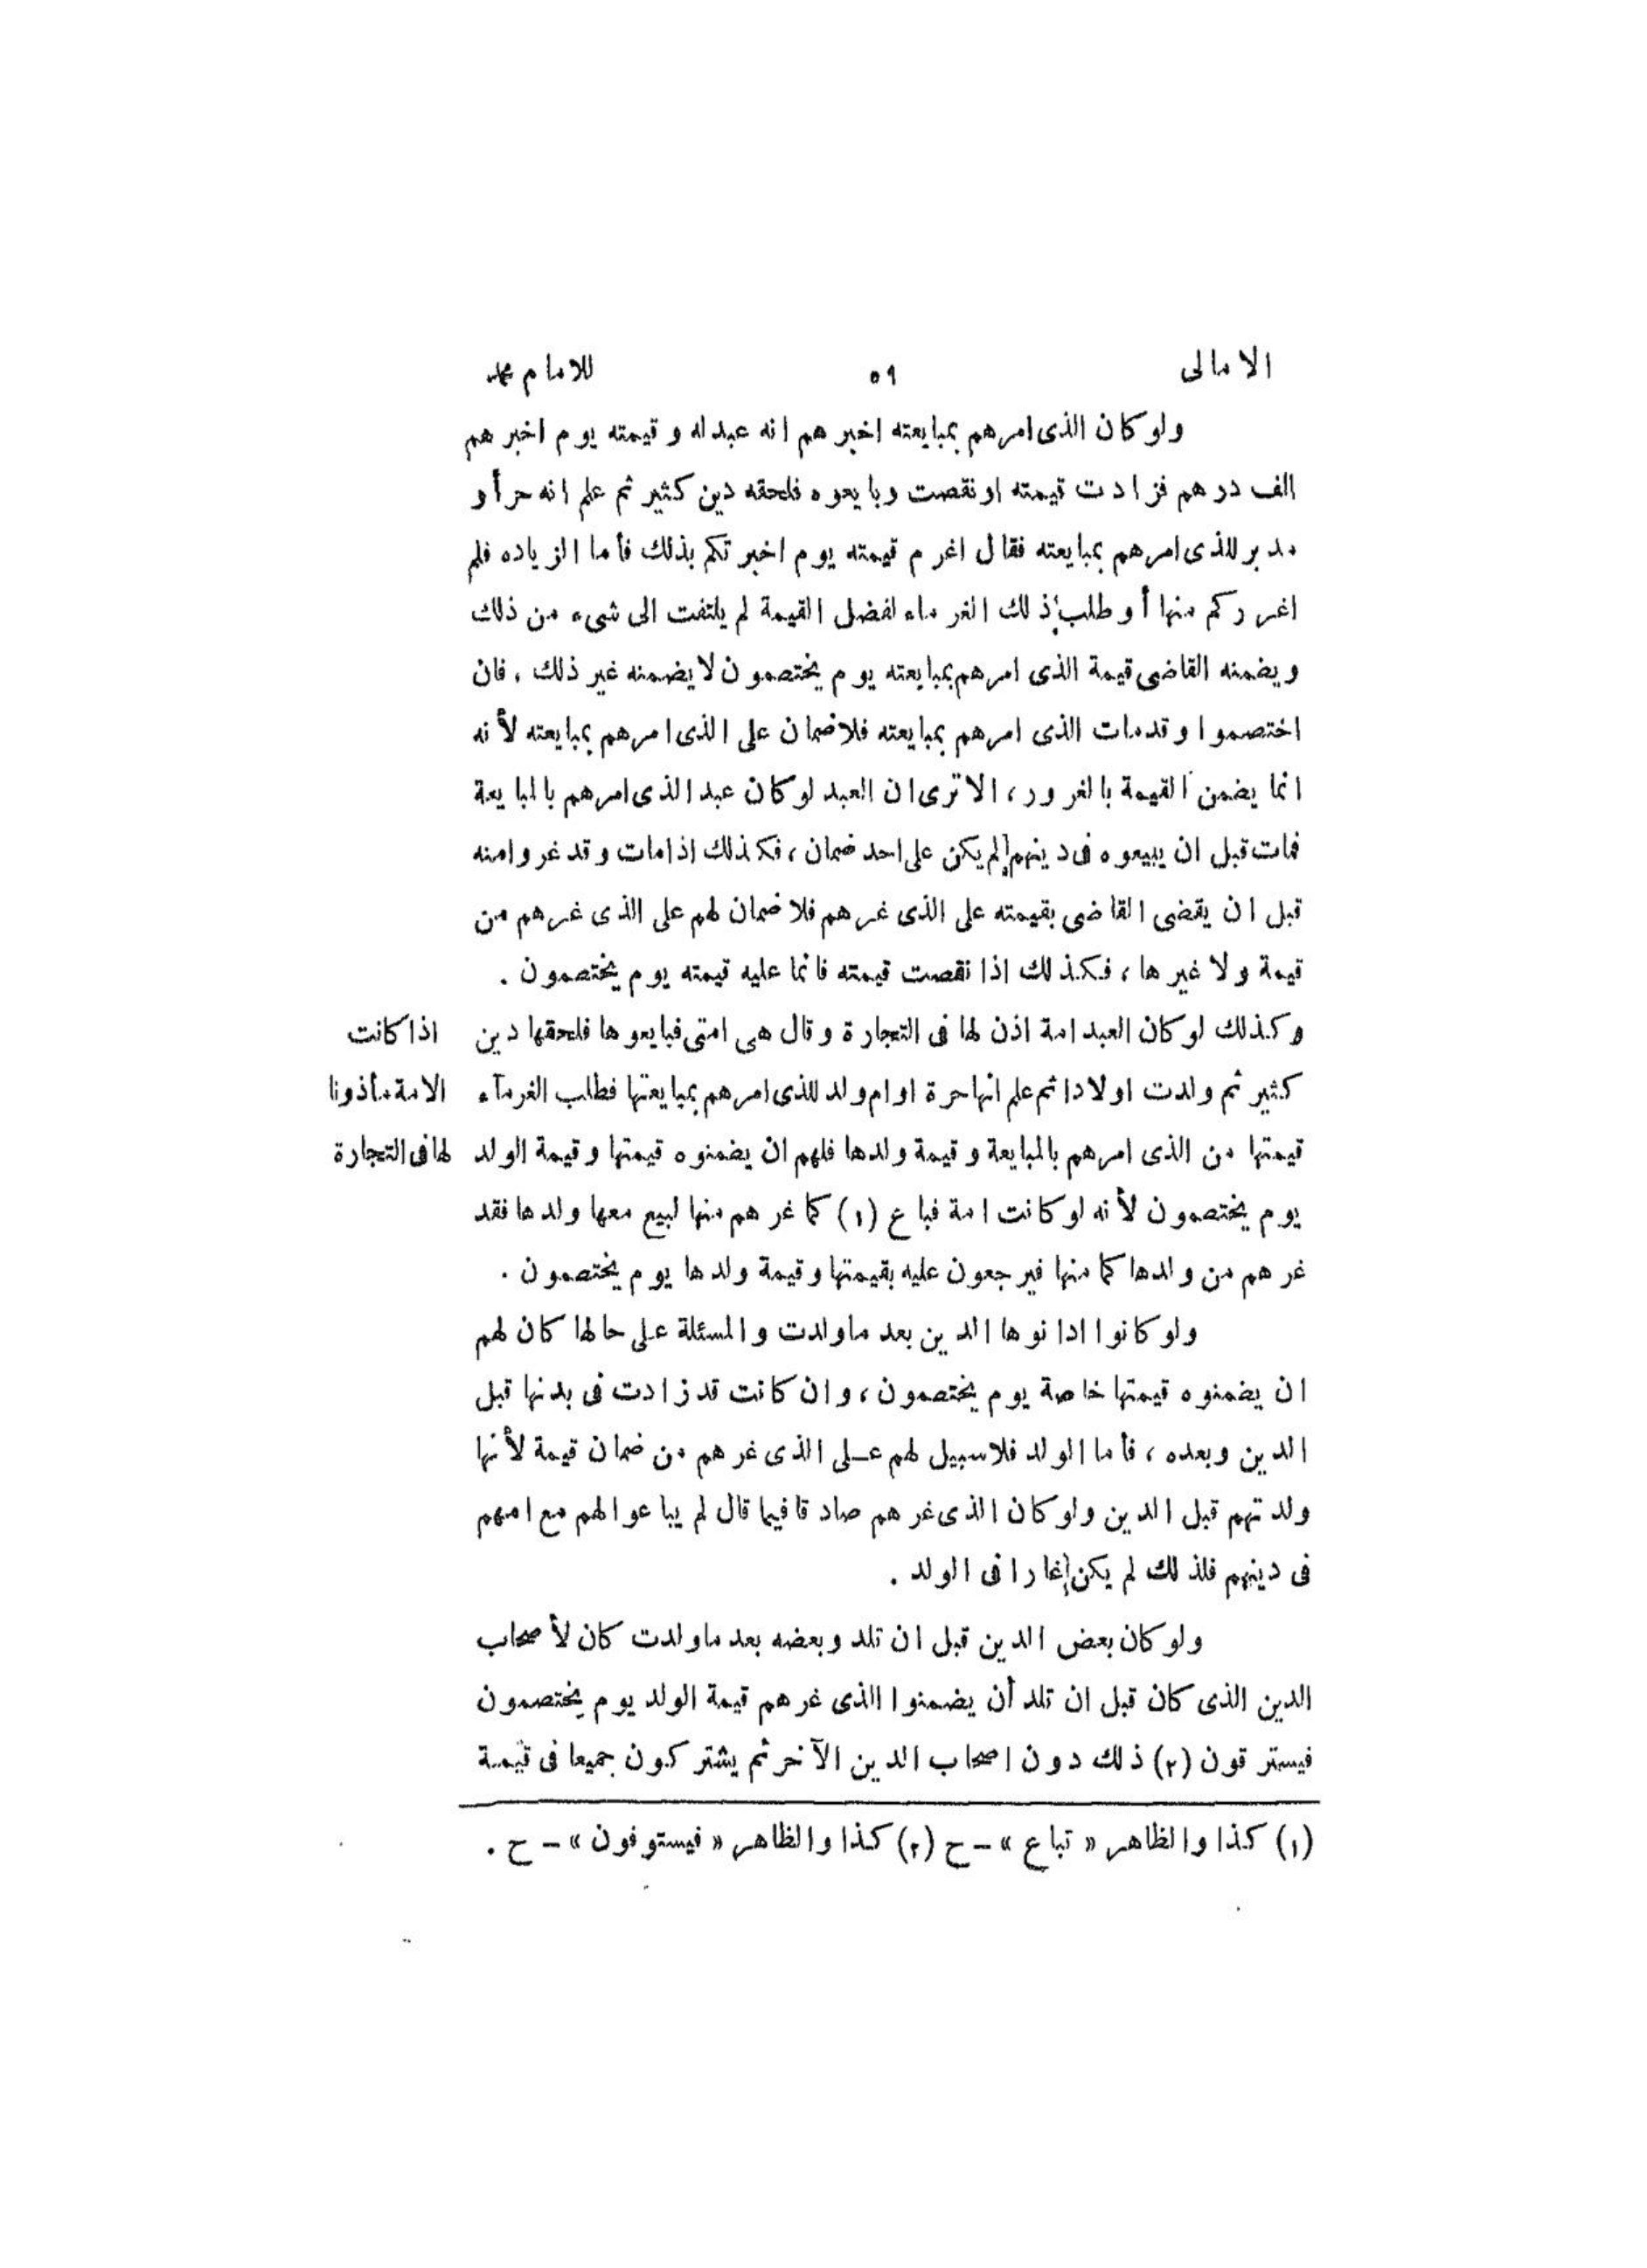 الامالى ٥٩ للامام محمد
ولو كان الذى امرهم بمبايعته اخبرهم انه عبدله و قيمته يوم اخبرهم
الف درهم فزادت قيمته او نقصت وبايعوه فلحقه دين كثير ثم علم انه حر أو
مدبر للذى امرهم بمبايعته فقال اغرم قيمته يوم اخبرتكم بذلك فأما الزياده فلم
اغرركم منها أو طلب ذلك الغرماء لفضل القيمة لم يلتفت الى شىء من ذلك
ويضمنه القاضى قيمة الذى امرهم بمبايعته يوم يختصمون لا يضمنه غير ذلك . فان
اختصموا وقدمات الذى امرهم بمبايعته فلاضمان على الذى امرهم بمبايعته لأنه
انما يضمن القيمة بالغرور ، الا ترى ان العبد لو كان عبد الذى امرهم بالمبايعة
فمات قبل ان يبيعوه فى دينهم لم يكن على احد ضمان ، فكذلك اذامات وقد غروامنه
قبل ان يقضى القاضى بقيمته على الذى غرهم فلا ضمان لهم على الذى غرهم من
قيمة ولا غيرها ، فكذلك اذا نقصت قيمته فانما عليه قيمته يوم يختصمون .
وكذلك لو كان العبد امة اذن لها فى التجارة وقال هى امتى فبايعوها فلحقها دين
اذا كانت
كثير ثم ولدت اولادا ثم علم انها حرة او ام ولد للذى امرهم بمبايعتها فطلب الغرمآء
الامة مأذونا
قيمتها من الذى امرهم بالمبايعة وقيمة ولدها فلهم ان يضمنوه قيمتها وقيمة الولد
لها فى التجارة
يوم يختصمون لأنه لو كانت امة فباع (١) كما غرهم منها لبيع معها ولدها فقد
غرهم من ولدها كما منها فيرجعون عليه بقيمتها وقيمة ولدها يوم يختصمون .
ولو كانوا ادانوها الدين بعد ماولدت والمسئلة على حالها كان لهم
ان يضمنوه قيمتها خاصة يوم يختصمون ، وان كانت قد زادت فى بدنها قبل
الدين وبعده ، فأما الولد فلاسبيل لهم على الذى غرهم من ضمان قيمة لأنها
ولدتهم قبل الدين ولو كان الذى غرهم صادقا فيما قال لم يباعوا لهم مع امهم
فى دينهم فلذلك لم يكن غارا فى الولد .
ولو كان بعض الدين قبل ان تلد وبعضه بعد ماولدت كان لأصحاب
الدين الذى كان قبل ان تلد أن يضمنوا الذى غرهم قيمة الولد يوم يختصمون
فيسترقون (٢) ذلك دون اصحاب الدين الآخر ثم يشتركون جميعا فى قيمة
(١) كذا والظاهر « تباع » – ح (٢) كذا والظاهر « فيستوفون » – ح .